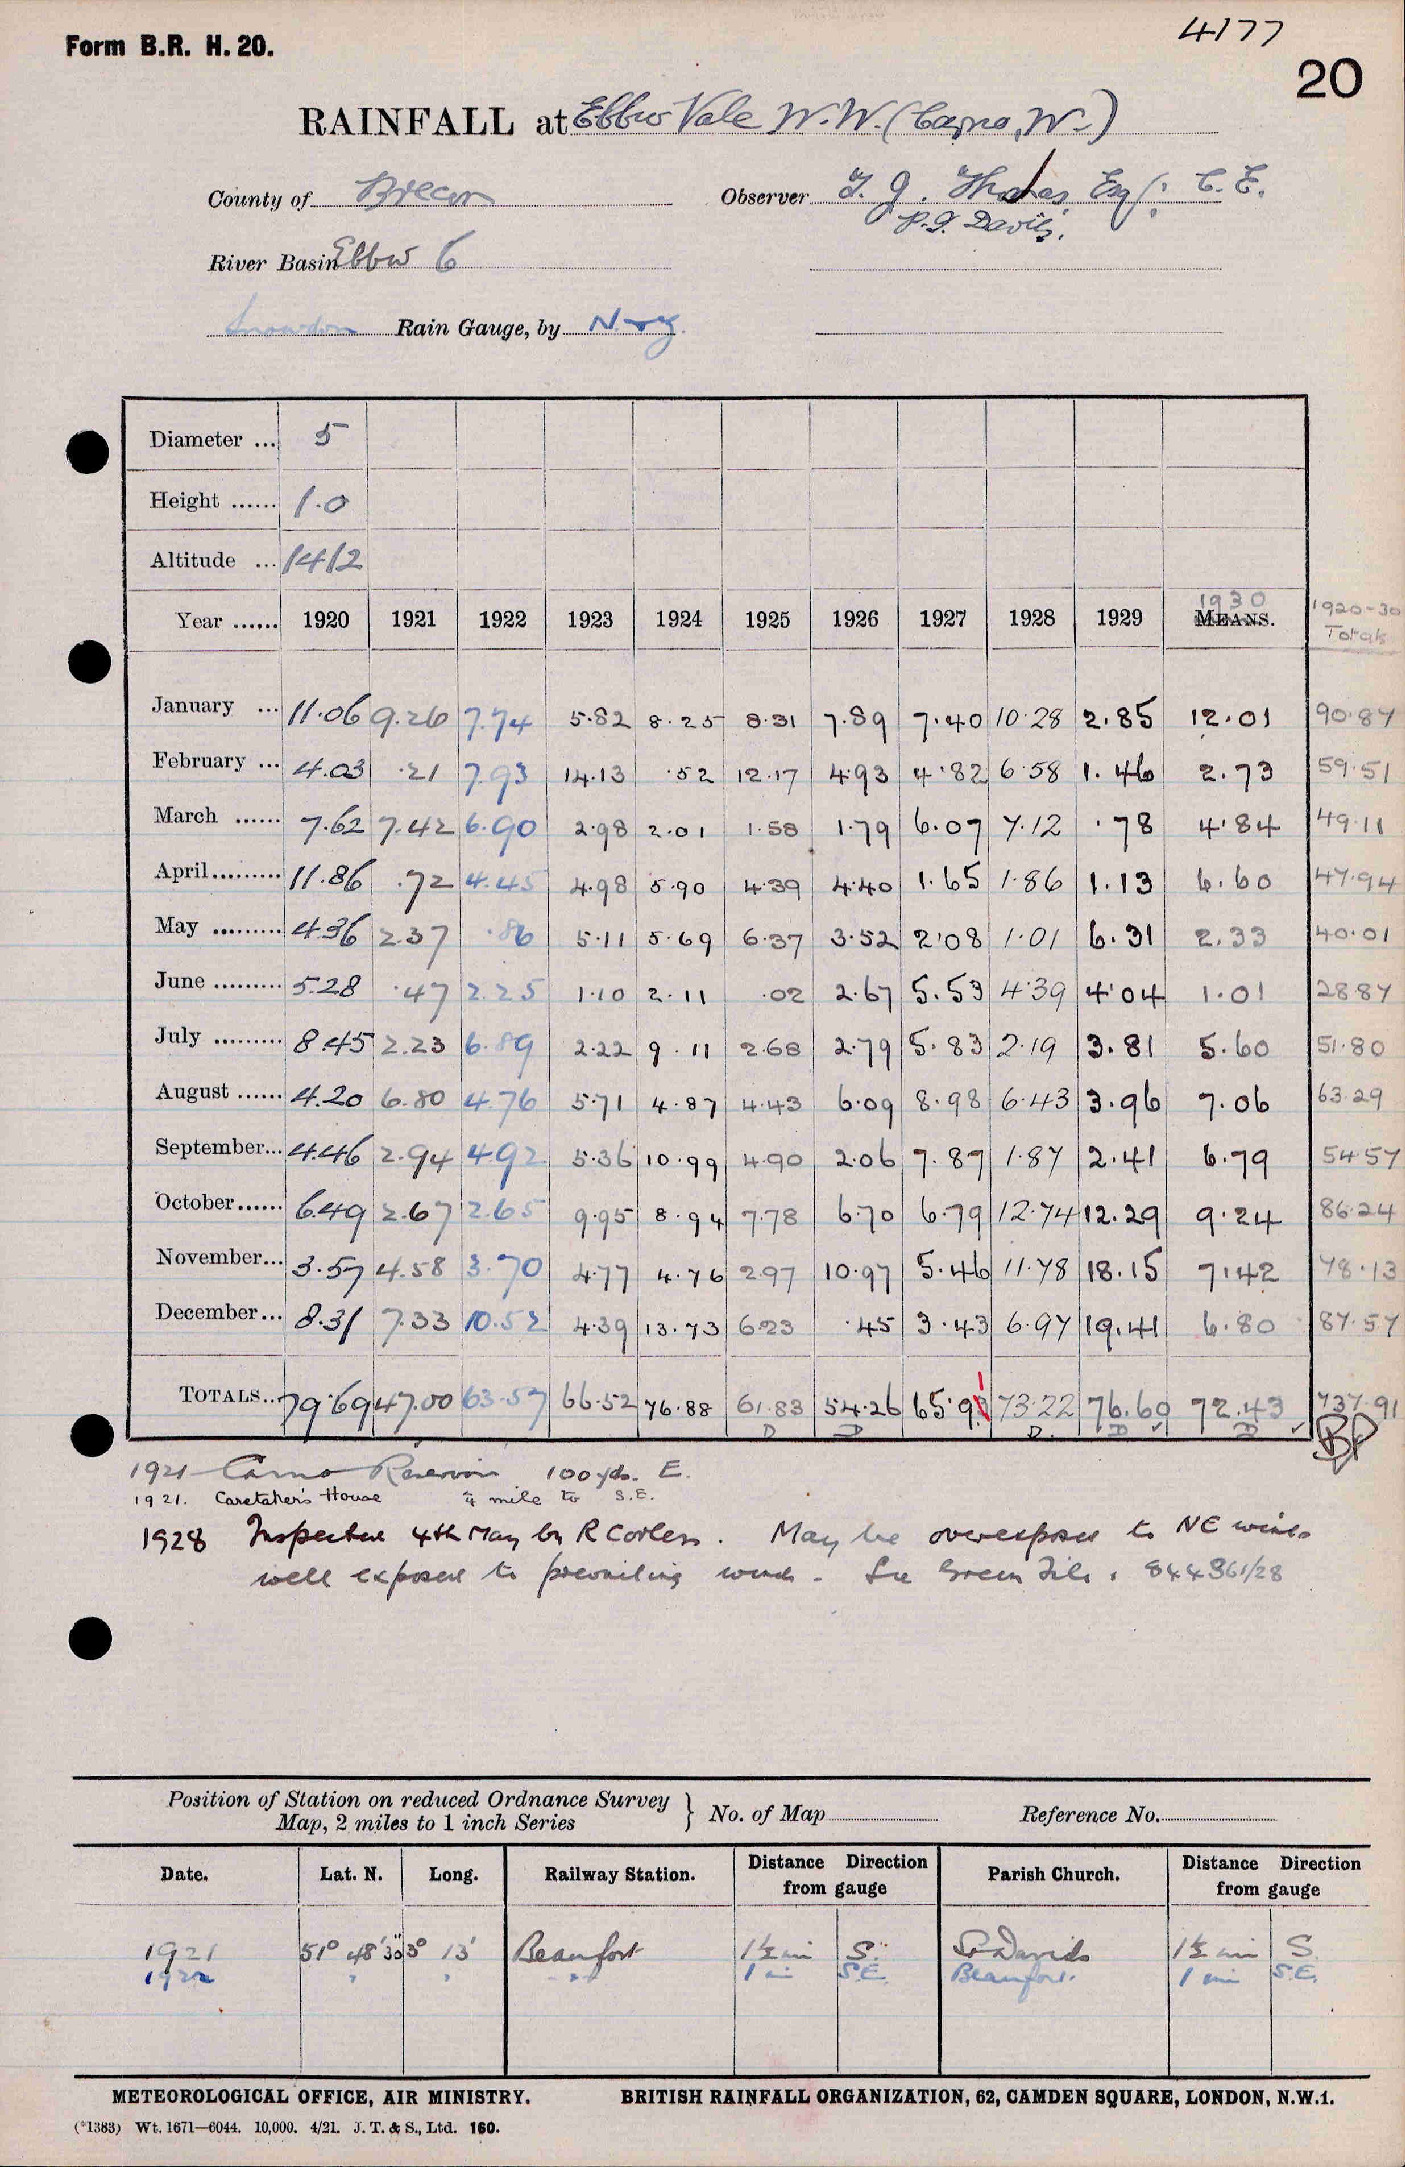 4177
Form B.R. H. 20.
20
RAINFALL at Ebbw Vale W.W. (Carno, W.)
County of Brecon Observer T. J. Thomas Esq. C. E.
P.G. Davies.
River Basin Ebbw 6
Snowdon Rain Gauge, by Neg.
Diameter ... 5
Height ...... 1.0
Altitude ... 1412
Year ...... 1920 1921 1922 1923 1924 1925 1926 1927 1928 1929 1930 MEANS. 1920-30 Totals
January ... 11.06 9.26 7.74 5.82 8.25 8.31 7.89 7.40 10.28 2.85 12.01 90.87
February ... 4.03 .21 7.93 14.13 .52 12.17 4.93 4.82 6.58 1.46 2.73 59.51
March ...... 7.62 7.42 6.90 2.98 2.01 1.58 1.79 6.07 7.12 .78 4.84 49.11
April......... 11.86 .72 4.45 4.98 5.90 4.39 4.40 1.65 1.86 1.13 6.60 47.94
May ......... 4.36 2.37 .86 5.11 5.69 6.37 3.52 2.08 1.01 6.31 2.33 40.01
June ......... 5.28 .47 2.25 1.10 2.11 .02 2.67 5.53 4.39 4.04 1.01 28.87
July ......... 8.45 2.23 6.89 2.22 9.11 2.68 2.79 5.83 2.19 3.81 5.60 51.80
August ...... 4.20 6.80 4.76 5.71 4.87 4.43 6.09 8.98 6.43 3.96 7.06 63.29
September... 4.46 2.94 4.92 5.36 10.99 4.90 2.06 7.87 1.87 2.41 6.79 54.57
October...... 6.49 2.67 2.65 9.95 8.94 7.78 6.70 6.79 12.74 12.29 9.24 86.24
November... 3.57 4.58 3.70 4.77 4.76 2.97 10.97 5.46 11.78 18.15 7.42 78.13
December... 8.31 7.33 10.52 4.39 13.73 6.23 .45 3.43 6.97 19.41 6.80 87.57
TOTALS... 79.69 47.00 63.57 66.52 76.88 61.83 54.26 65.91 73.22 76.60 72.43 737.91
D D D. D D BP
1921 Carno Reservoir 100 yds. E.
1921. Caretaker's House ¼ mile to S.E.
1928 Inspected 4th May by R Corless. May be overexposed to NE winds
well exposed to prevailing winds. See Green File. 844361/28
Position of Station on reduced Ordnance Survey Map, 2 miles to 1 inch Series } No. of Map Reference No.
Date. Lat. N. Long. Railway Station. Distance Direction from gauge Parish Church. Distance Direction from gauge
1921 51° 48' 30" 3° 13' Beaufort 1½ mi S. St Davids 1½ mi S.
1922 " " " " 1 mi S.E. Beaufort. 1 mi S.E.
METEOROLOGICAL OFFICE, AIR MINISTRY. BRITISH RAINFALL ORGANIZATION, 62, CAMDEN SQUARE, LONDON, N.W.1.
(*1383) Wt. 1671—6044. 10,000. 4/21. J. T. & S., Ltd. 160.